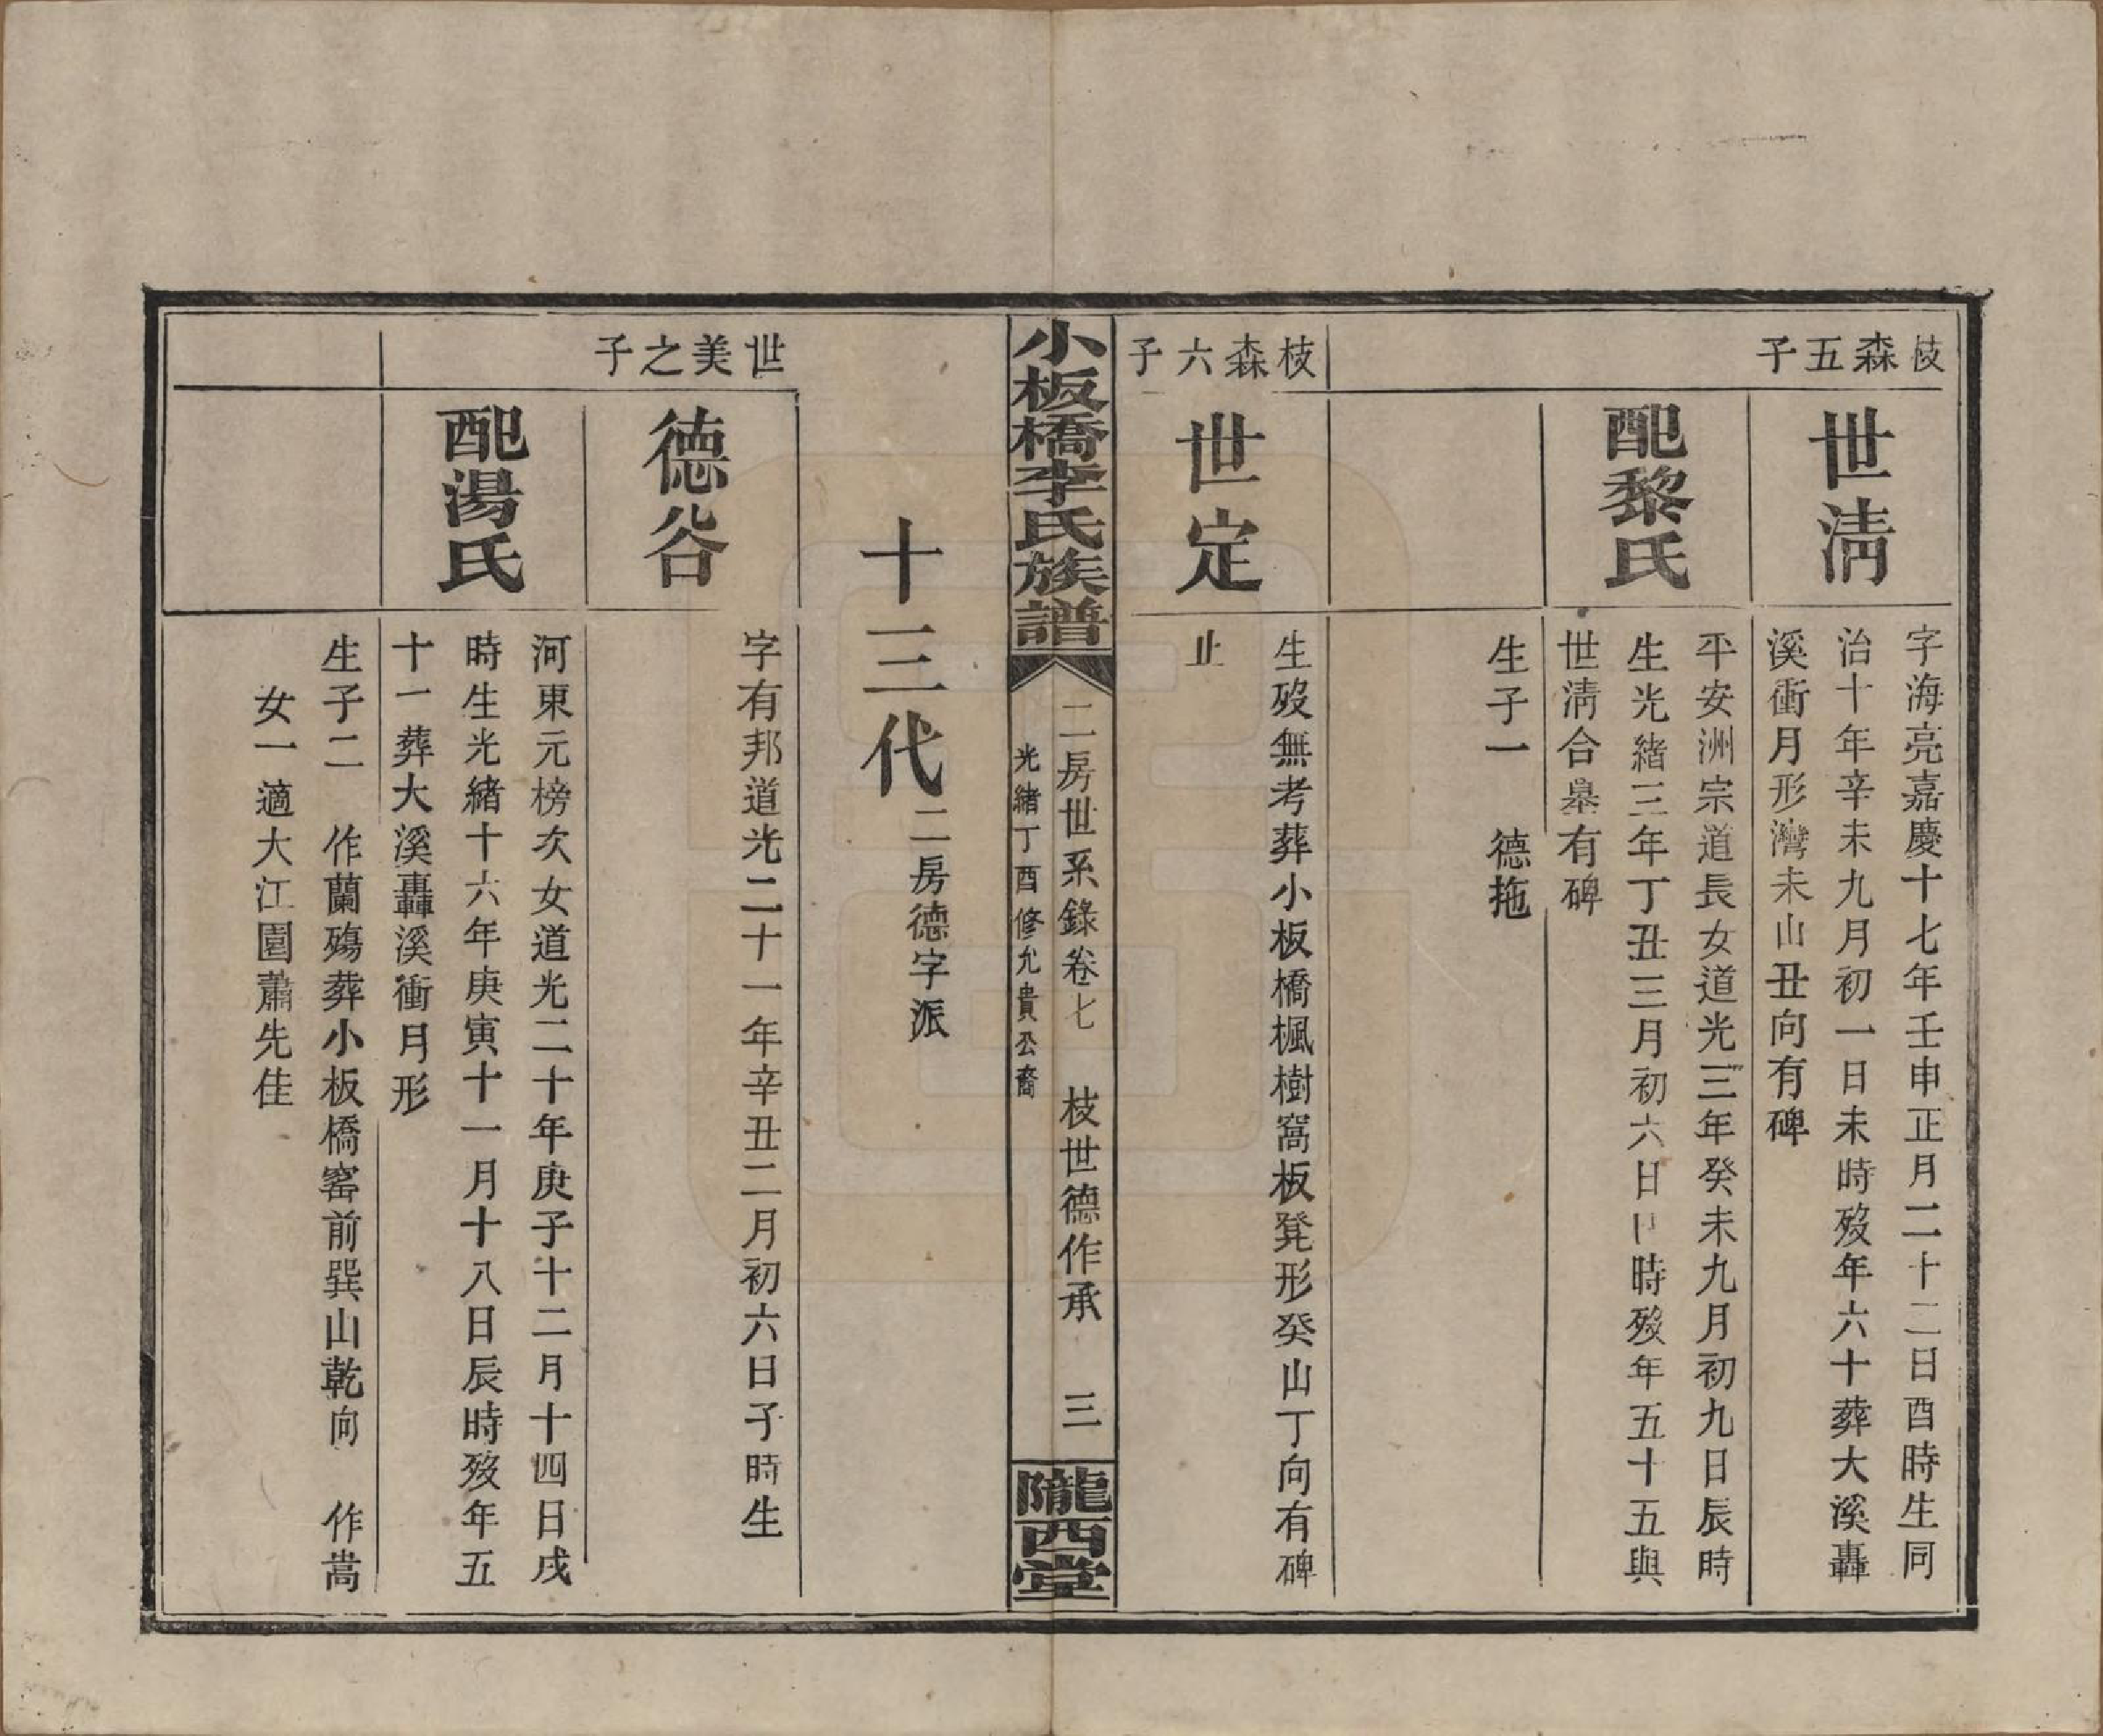 枝森五子
世淸
字海亮嘉慶十七年壬申正月二十二日酉時生同
治十年辛未九月初一日未時歿年六十葬大溪轟
溪衝月形灣未山丑向有碑
配黎氏
平安洲宗道長女道光三年癸未九月初九日辰時
生光緒三年丁丑三月初六日時歿年五十五與
世淸合墓有碑
生子一　德拖
枝森六子
世定
生歿無考葬小板橋楓樹窩板凳形癸山丁向有碑
止
小板橋李氏族譜
二房世系錄卷七　枝世德作承　三
光緒丁酉修允貴公裔
隴西堂
十三代二房德字派
世美之子
德谷
字有邦道光二十一年辛丑二月初六日子時生
配湯氏
河東元榜次女道光二十年庚子十二月十四日戌
時生光緒十六年庚寅十一月十八日辰時歿年五
十一葬大溪轟溪衝月形
生子二　作蘭殤葬小板橋窰前巽山乾向　作嵩
女一適大江園蕭先佳